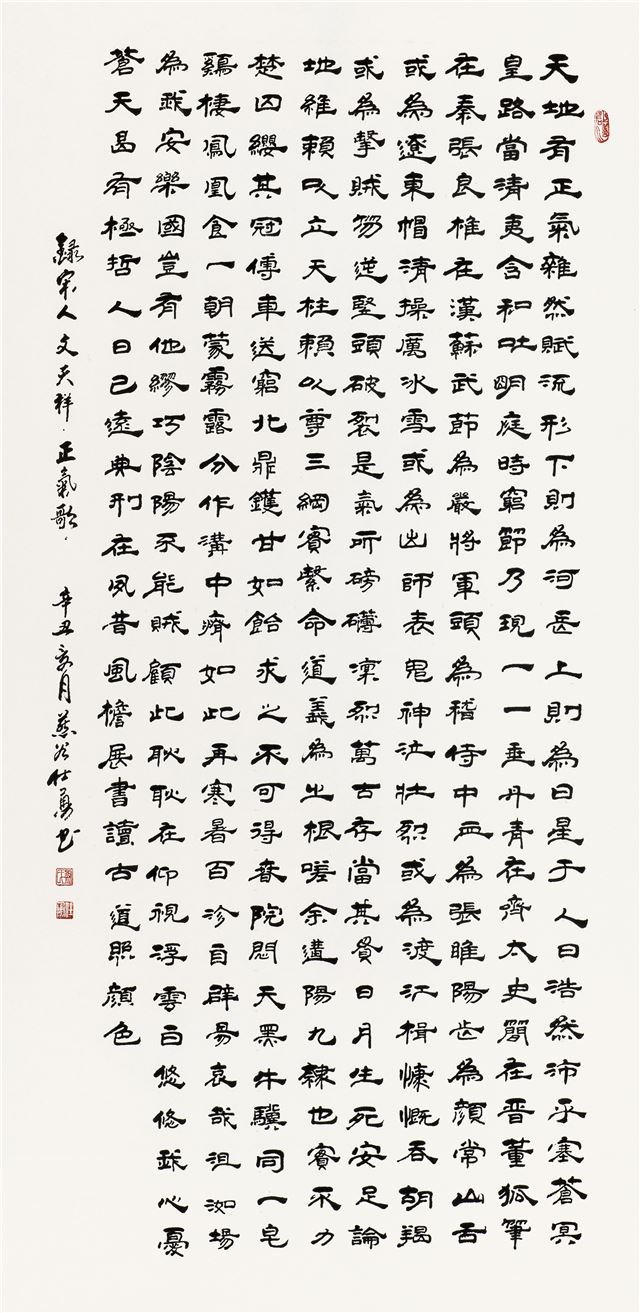 天地有正氣雜然賦流形下則為河岳上則為日星于人曰浩然沛乎塞蒼冥
皇路當清夷含和吐明庭時窮節乃現一一垂丹青在齊太史簡在晉董狐筆
在秦張良椎在漢蘇武節為嚴將軍頭為稽侍中血為張睢陽齒為顏常山舌
或為遼東帽清操厲冰雪或為出師表鬼神泣壯烈或為渡江楫慷慨吞胡羯
或為擊賊笏逆豎頭破裂是氣所磅礴凜烈萬古存當其貫日月生死安足論
地維賴以立天柱賴以尊三綱實繫命道義為之根嗟余遘陽九隸也實不力
楚囚纓其冠傳車送窮北鼎鑊甘如飴求之不可得春院悶天黑牛驥同一皂
鷄棲鳳凰食一朝蒙霧露分作溝中瘠如此再寒暑百沴自辟易哀哉沮洳場
為我安樂國豈有他繆巧陰陽不能賊顧此耿耿在仰視浮雲白悠悠我心憂
蒼天曷有極哲人日已遠典刑在夙昔風檐展書讀古道照顏色
錄宋人文天祥·正氣歌· 辛丑亥月燕谷仕勇书